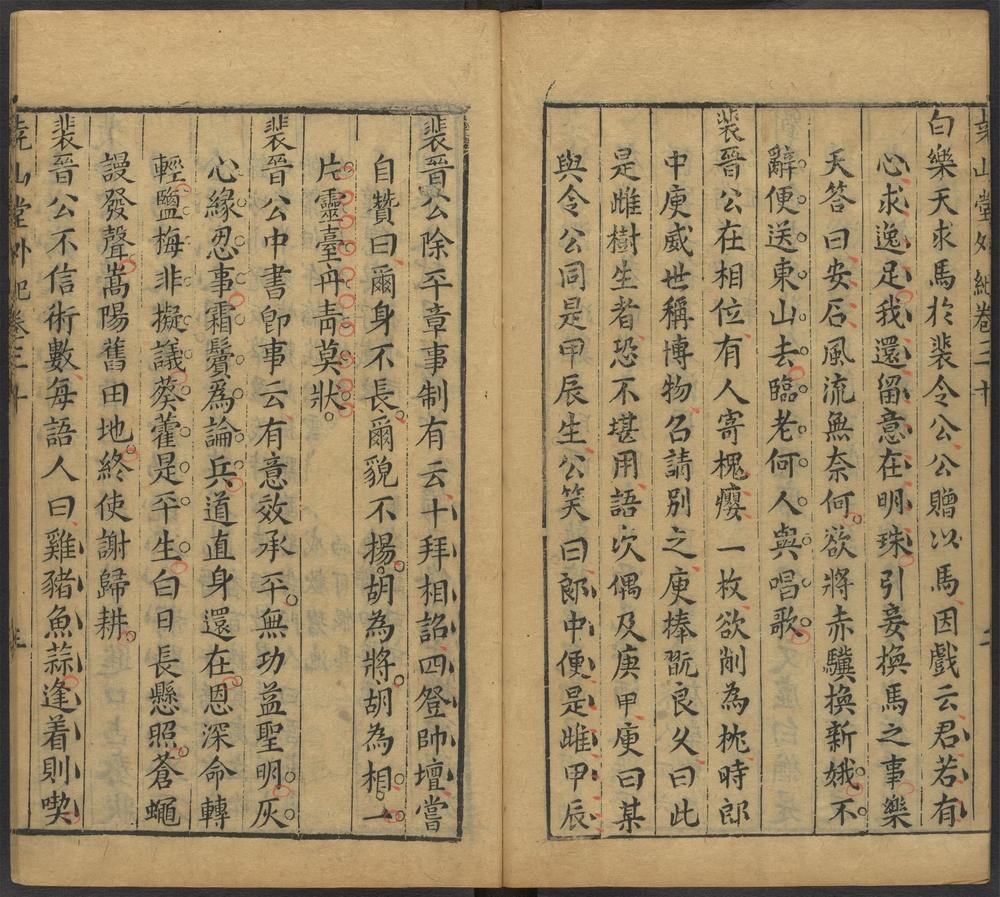 堯山堂外紀卷三十
白樂天求馬於裴令公公贈以馬因戲云君若有
心求逸足我還留意在明珠引妾換馬之事樂
天答曰安石風流無奈何欲將赤驥換新娥不
辭便送東山去臨老何人與唱歌
裴晉公在相位有人寄槐癭一枚欲削為枕時郎
中庾威世稱博物召請別之庾捧翫良久曰此
是雌樹生者恐不堪用語次偶及庚甲庾曰某
與令公同是甲辰生公笑曰郎中便是雌甲辰
裴晉公除平章事制有云十拜相詔四登帥壇嘗
自贊曰爾身不長爾貌不揚胡為將胡為相一
片靈臺丹青莫狀
裴晉公中書即事云有意效承平無功益聖明灰
心緣忍事霜鬢為論兵道直身還在恩深命轉
輕鹽梅非擬議葵藿是平生白日長懸照蒼蠅
謾發聲嵩陽舊田地終使謝歸耕
裴晉公不信術數每語人曰雞豬魚蒜逢着則喫
堯山堂外紀卷三十